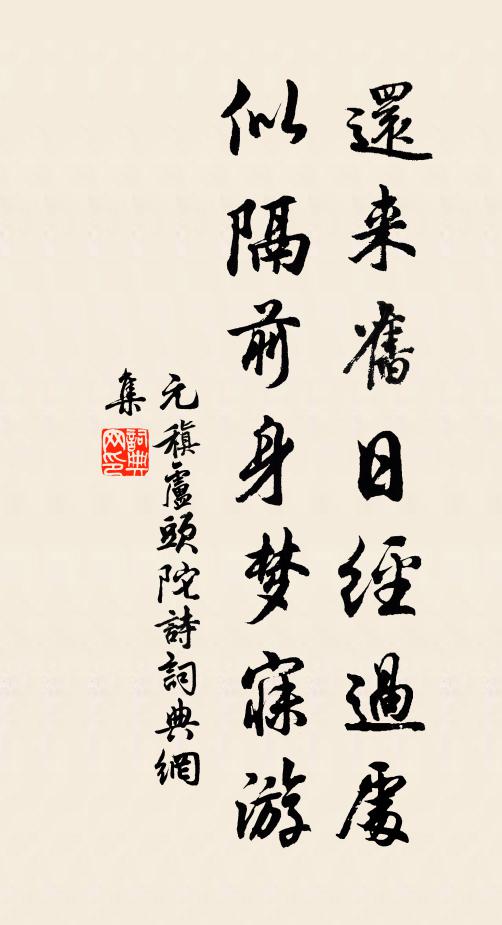 還来舊日經過處
似隔前身梦寐游
元稹盧頭陀詩詞典網
集
詞典网印